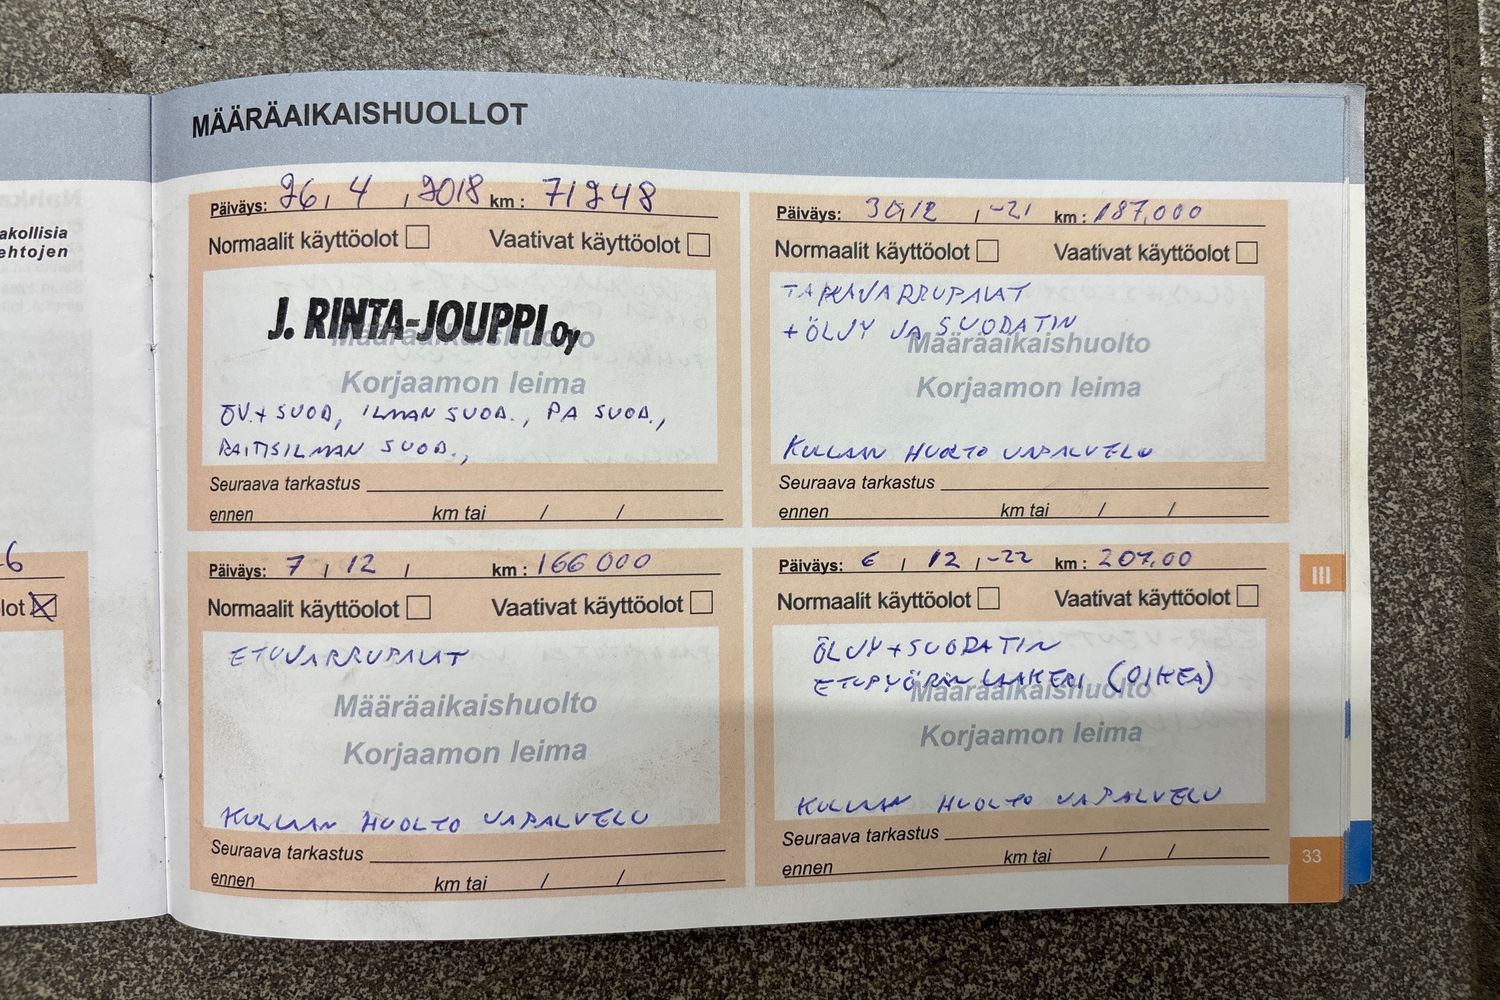 MÄÄRÄAIKAISHUOLLOT
akollisia
ehtojen
6
lot
Päiväys: 26, 4, 2018 km: 71248
Normaalit käyttöolot Vaativat käyttöolot
J. RINTA-JOUPPI Oy
Määräaikaishuolto
Korjaamon leima
ÖV.+ SUOD, ILMAN SUOD., PA SUOD.,
RAITISILMAN SUOD.,
Seuraava tarkastus
ennen km tai / /
Päiväys: 30,12, -21 km: 187,000
Normaalit käyttöolot Vaativat käyttöolot
TAKAVARRUPALAT
+ ÖLJY JA SUODATIN
Määräaikaishuolto
Korjaamon leima
KULLAAN HUOLTO JAPALVELU
Seuraava tarkastus
ennen km tai / /
Päiväys: 7, 12, km: 166 000
Normaalit käyttöolot Vaativat käyttöolot
ETUJARRUPALAT
Määräaikaishuolto
Korjaamon leima
KULLAAN HUOLTO JAPALVELU
Seuraava tarkastus
ennen km tai / /
Päiväys: 6, 12, -22 km: 207,00
Normaalit käyttöolot Vaativat käyttöolot
ÖLJY + SUODATIN
ETUPYÖRÄN LAAKERI (OIKEA)
Määräaikaishuolto
Korjaamon leima
KULLAAN HUOLTO JAPALVELU
Seuraava tarkastus
ennen km tai / /
III
33